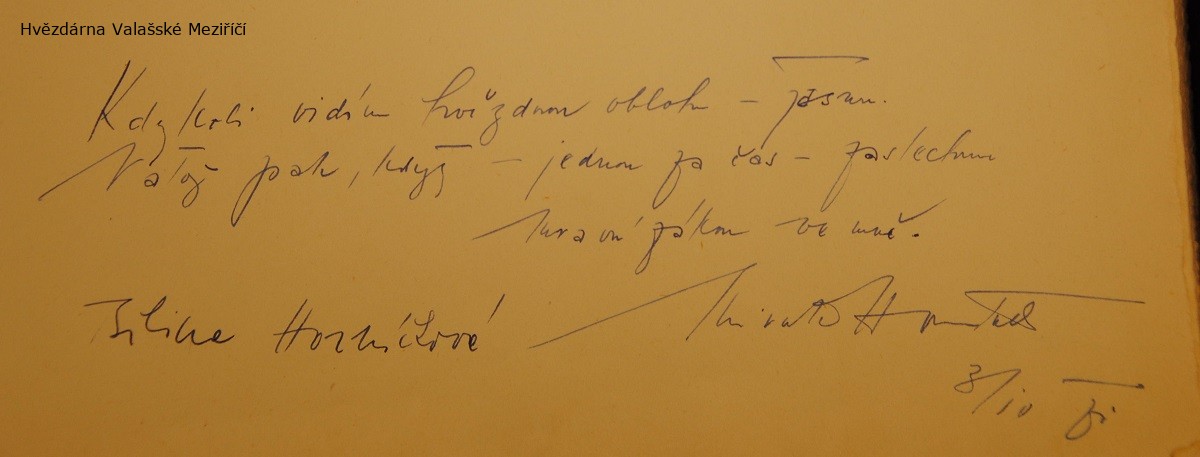 Hvězdárna Valašské Meziříčí
Kdykoli vidím hvězdnou oblohu – jasnu.
Natož pak, když – jednou za čas – zaslechnu
mravní zákon ve mně.
Bilina Horníčková Miroslav Horníček
3/10